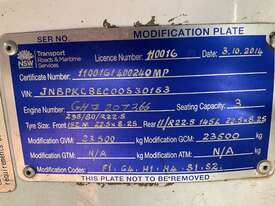 MODIFICATION PLATE
NSW Transport Roads & Maritime Services
Licence Number 110016 Date 3.10.2014
Certificate Number 110016/400240MP
VIN JNBPKC8EC00530153
Engine Number GH7 207266 Seating Capacity 3
295/80/R22.5
Tyre Size Front 152 M 22.5x8.25 Rear 11/R22.5 22.5x8.25
Modification GVM: 23500 Modification GCM: 23500
Modification GTM: N/A Modification ATM: N/A
Modification Codes F1. G4. H1. H4. S1. S2.
THIS PLATE NOT TO BE REMOVED